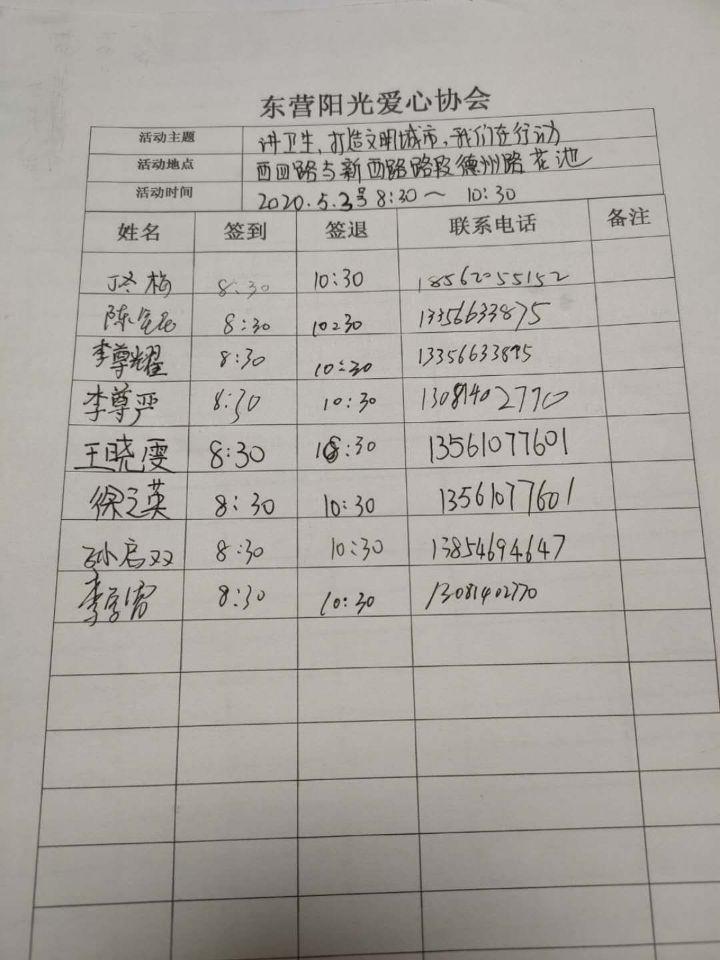 东营阳光爱心协会
活动主题 讲卫生,打造文明城市,我们在行动
活动地点 西四路与新西路路段德州路花池
活动时间 2020.5.3号 8:30~10:30
姓名 签到 签退 联系电话 备注
丁冬梅 8:30 10:30 18562055152
陈 8:30 10:30 13356633875
李尊耀 8:30 10:30 13356633875
李尊严 8:30 10:30 13081402770
王晓雯 8:30 10:30 13561077601
徐之英 8:30 10:30 13561077601
孙启双 8:30 10:30 13854694647
李 8:30 10:30 13081402770